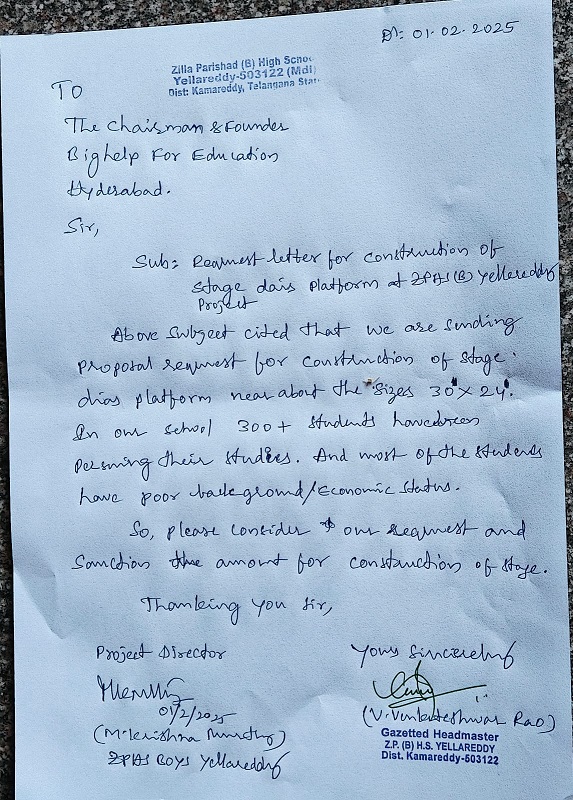 Dt: 01-02-2025
Zilla Parishad (B) High Schoo
Yellareddy-503122 (Mdl)
Dist: Kamareddy, Telangana Stat
To
The Chairman & Founder
Bighelp For Education
Hyderabad.
Sir,
Sub: Request letter for construction of
stage dais platform at ZPHS(B) Yellareddy
Project
Above Subject cited that we are sending
proposal request for construction of stage
dias platform near about the sizes 30'x 24'.
In our school 300+ students have been
persuing their studies. And most of the students
have poor background/Economic status.
So, please consider our request and
Sanction the amount for construction of stage.
Thanking you sir,
Project Director
Yours Sincerely
01/2/2025
(M. Krishna Murthy)
(V. Venkateshwar Rao)
ZPHS Boys Yellareddy
Gazetted Headmaster
Z.P. (B) H.S. YELLAREDDY
Dist. Kamareddy-503122